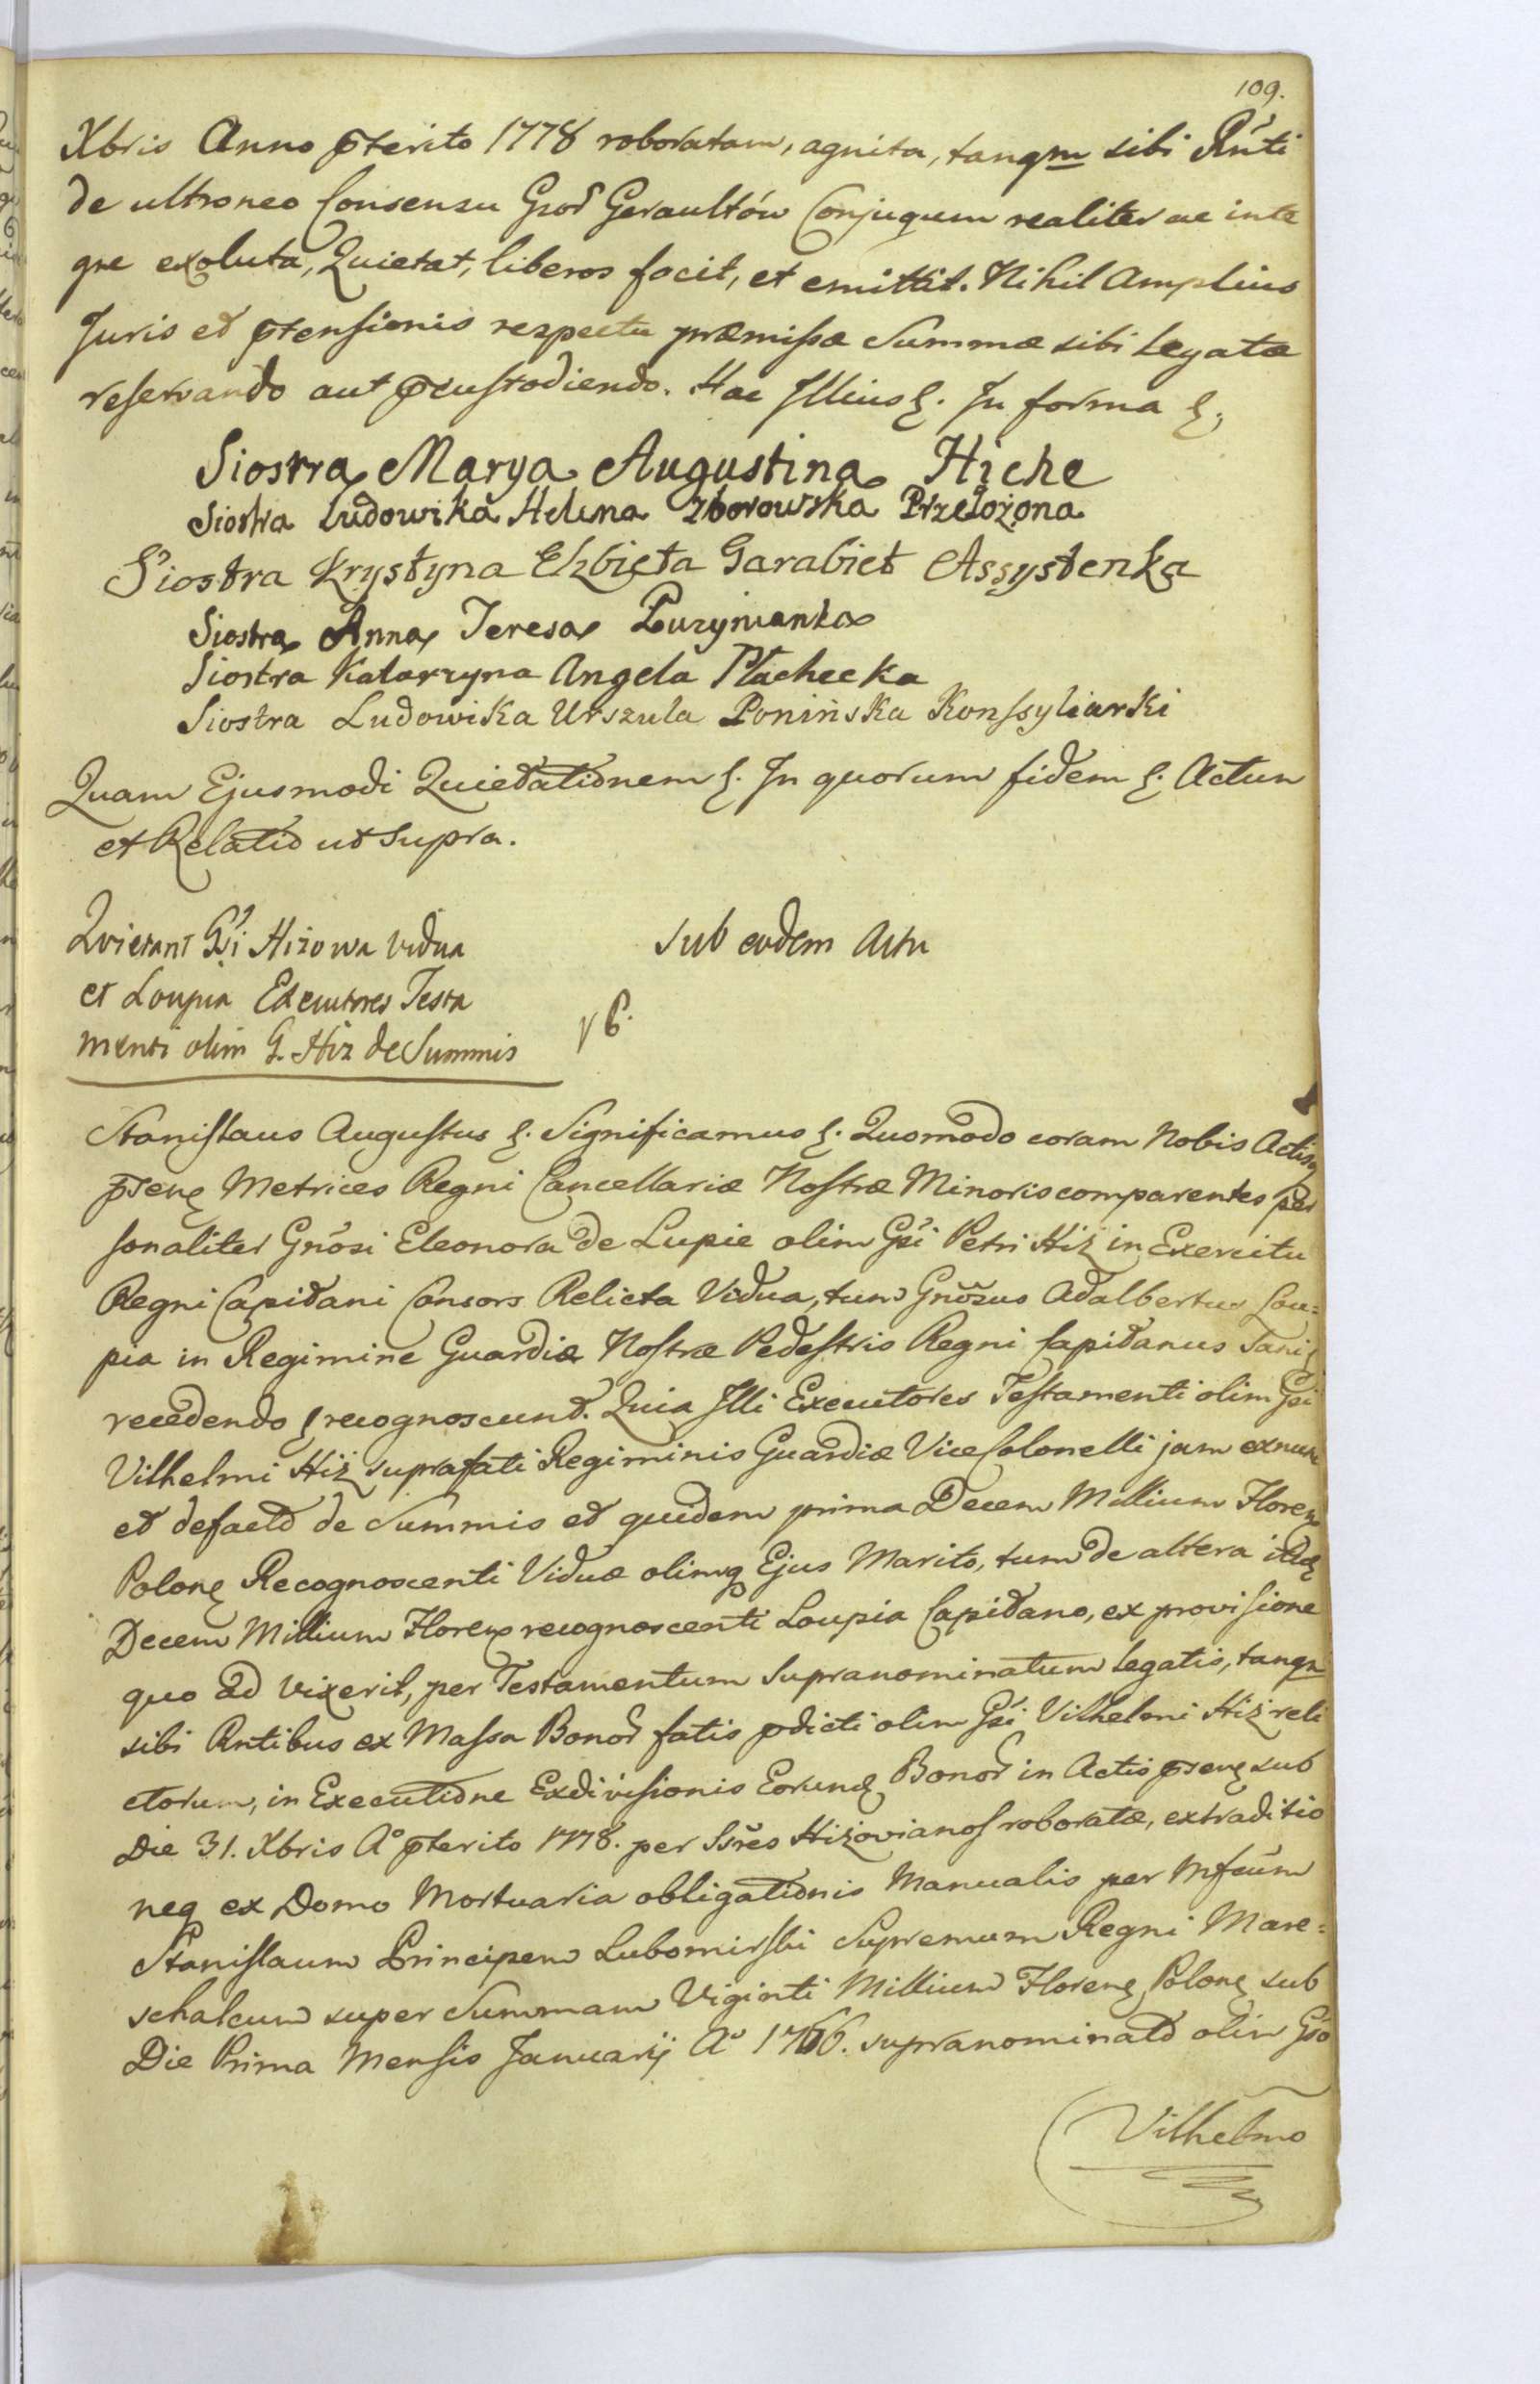 109.
Xbris Anno pterito 1778 roboratam, agnita, tanqm sibi Rńti
de ultroneo Consensu Gsor Geraultów Conjugum realiter ac inte
gre exoluta, Quietat, liberos facit, et emittit. Nihil Amplius
Juris et ptensionis respectu præmissæ Summæ sibi legatæ
reservando aut pcustodiendo. Hac Illius &. In forma &,
Siostra Marya Augustina Hiche
Siostra Ludowika Helena Zborowska Przełożona
Siostra Krystyna Elzbieta Garabiet Assystenka
Siostra Anna Teresa Puzynianka
Siostra Katarzyna Angela Płachecka
Siostra Ludowika Urszula Ponińska Konssyliarki
Quam Ejusmodi Quietationem &. In quorum fidem &. Actum
et Relatio ut supra.
Quietant Gsi Hizowa Vidua
et Loupia Executores Testa
menti olim G. Hiz de Summis
Sub eodem Actu
Stanislaus Augustus &. Significamus &. Quomodo coram Nobis Actisq
psenę Metrices Regni Cancellariæ Nostræ Minoris comparentes per
sonaliter Gnosi Eleonora de Lupie olim Gsi Petri Hiż in Exercitu
Regni Capitani Consors Relicta Vidua, tum Gnosus Adalbertus Lou=
pia in Regimine Guardiæ Nostræ Pedestris Regni Capitanus Sani &
recedendo & recognoscunt. Quia Illi Executores Testamenti olim Gsi
Vilhelmi Hiż suprafati Regiminis Guardiæ Vice Colonelli jam exnunc
et defacto de Summis et quidem prima Decem Millium Floren
Polonę Recognoscenti Viduæ olimq Ejus Marito, tum de altera itidę
Decem Millium Floren recognoscenti Loupia Capitano, ex provisione
quo ad vixerit, per Testamentum supranominatum legatis, tanqm
sibi Rntibus ex Massa Bonor fatis pdicti olim Gsi Vilhelmi Hiż reli
ctorum, in Executione Exdivisionis Eorundę Bonor in Actis psenę sub
Die 31. Xbris A° pterito 1778. per Ssres Hiżovianos roboratæ, extraditio
neq ex Domo Mortuaria obligationis Manualis per Mfcum
Stanislaum Principem Lubomirski Supremum Regni Mare=
schalcum super Summam Viginti Millium Florenę Polonę sub
Die Prima Mensis Januarij A° 1766. supranominato olim Gso
Vilhelmo